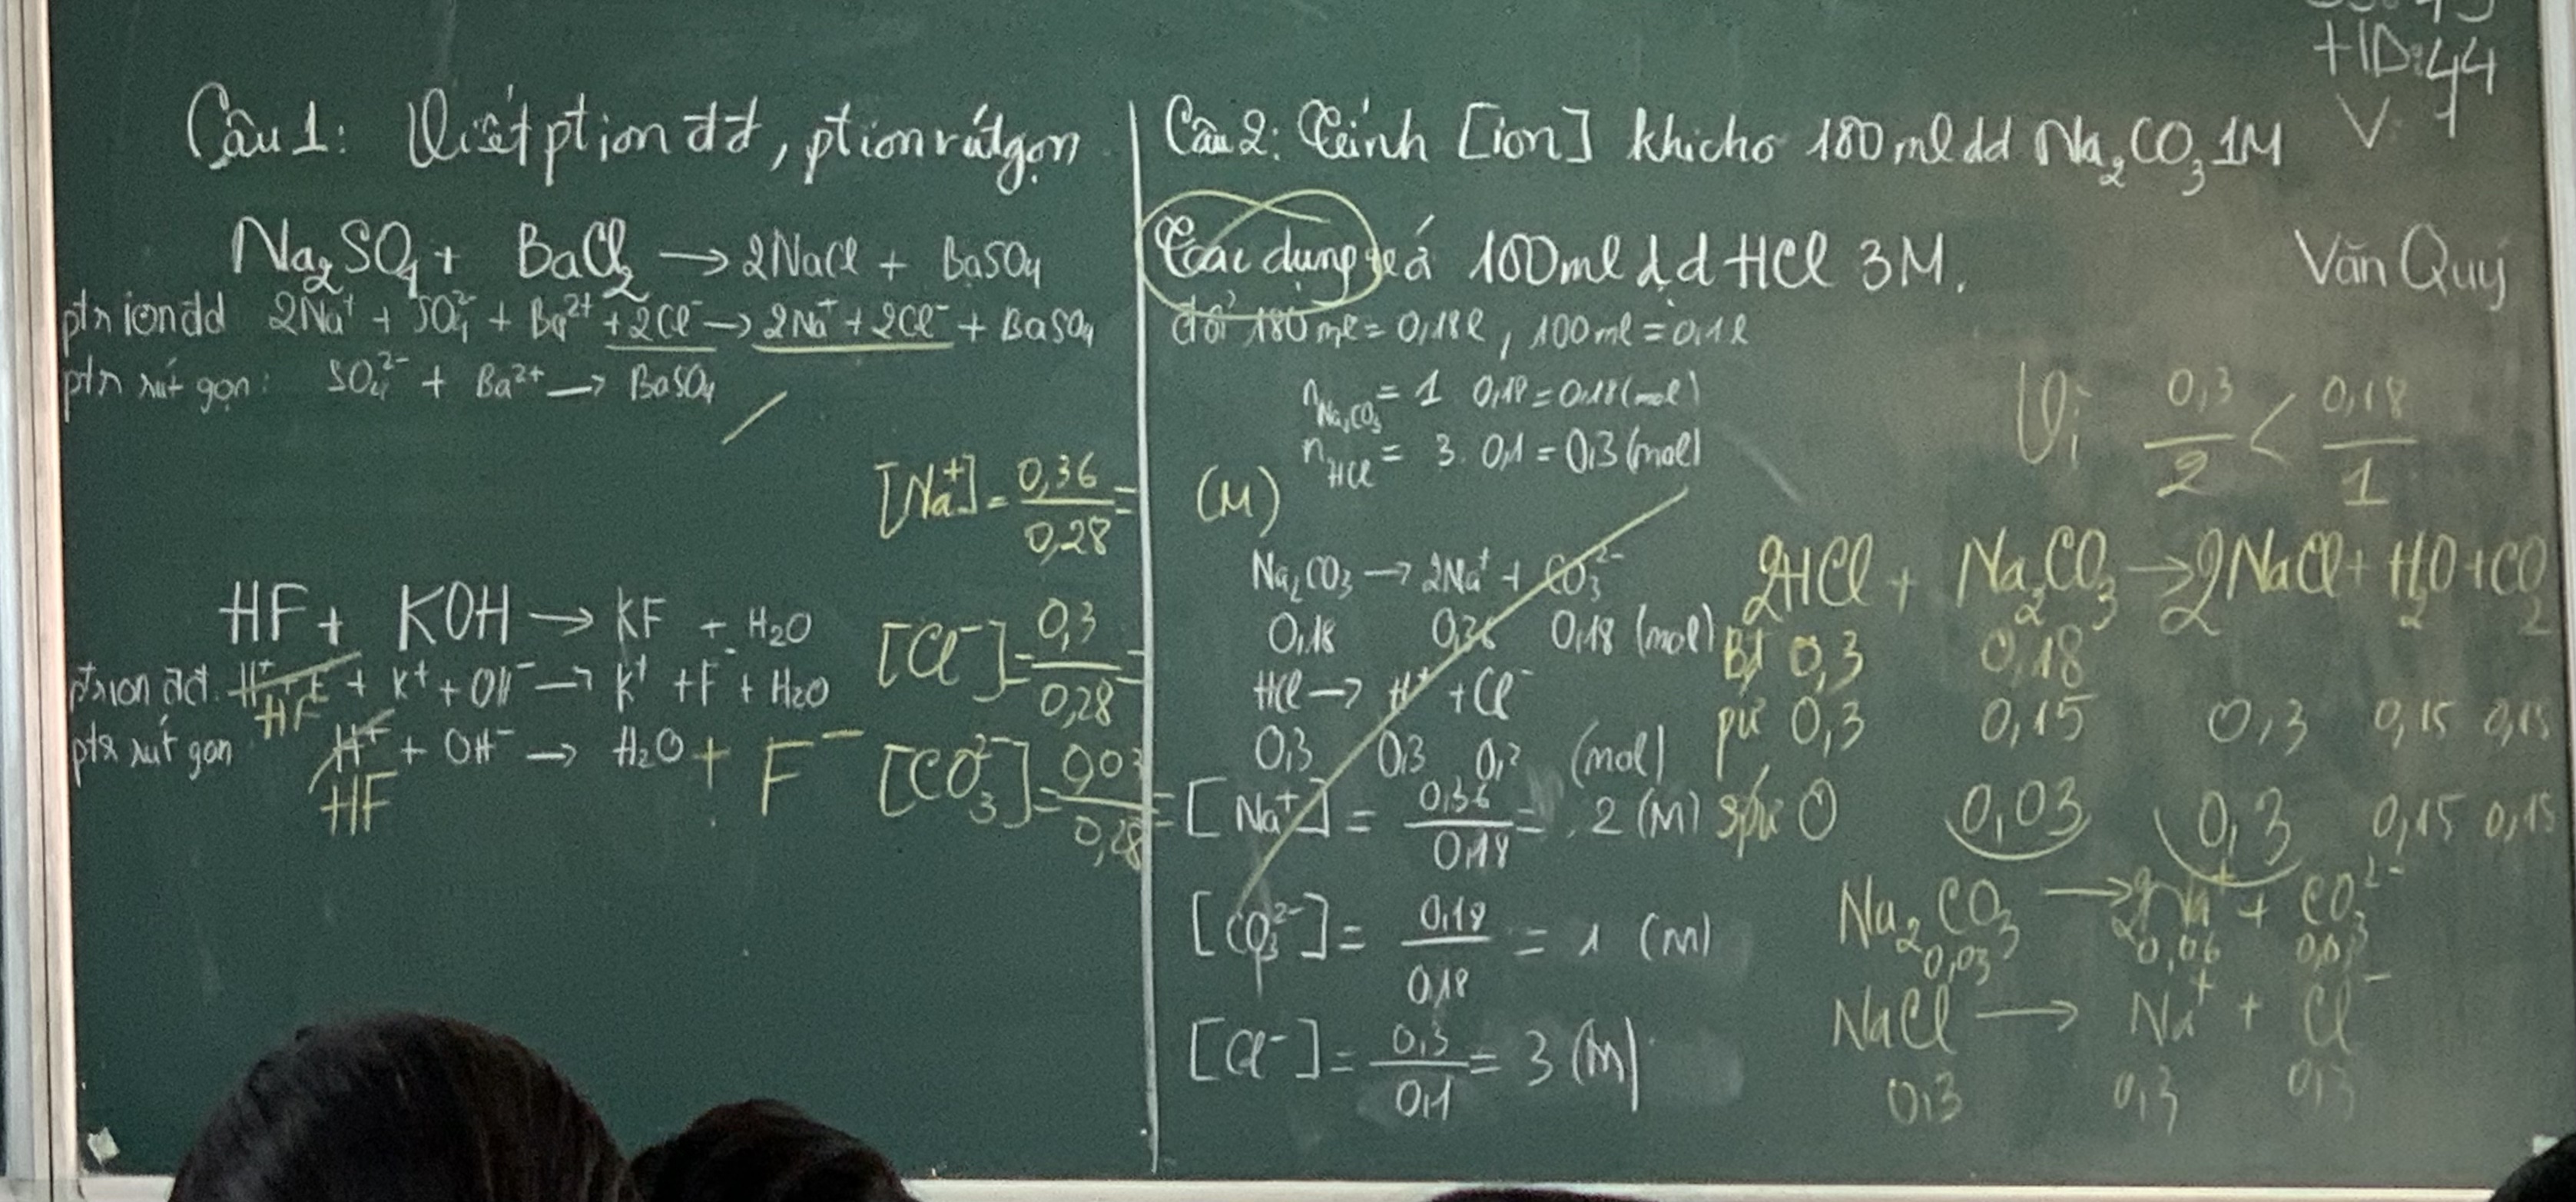 Câu 1: Viết ption đđ, ption rút gọn
Na₂SO₄ + BaCl₂ → 2NaCl + BaSO₄
ptr ion dd 2Na⁺ + SO₄²⁻ + Ba²⁺ + 2Cl⁻ → 2Na⁺ + 2Cl⁻ + BaSO₄
ptr rút gọn: SO₄²⁻ + Ba²⁺ → BaSO₄
HF + KOH → KF + H₂O
ptr ion đđ. + K⁺ + OH⁻ → K⁺ + F⁻ + H₂O
HF
ptr rút gọn H⁺ + OH⁻ → H₂O + F⁻
HF
[Na⁺] = 0,36 / 0,28 = (M)
[Cl⁻] = 0,3 / 0,28 =
[CO₃²⁻] = 0,03 / 0,28 =
Câu 2: Tính [ion] khi cho 180 ml dd Na₂CO₃ 1M
Tác dụng 100ml dd HCl 3M.
đổi 180 ml = 0,18l, 100 ml = 0,1l
nNa₂CO₃ = 1 . 0,18 = 0,18 (mol)
nHCl = 3 . 0,1 = 0,3 (mol)
Na₂CO₃ → 2Na⁺ + CO₃²⁻
0,18 0,36 0,18 (mol)
HCl → H⁺ + Cl⁻
0,3 0,3 0,3 (mol)
[Na⁺] = 0,36 / 0,18 = 2 (M)
[CO₃²⁻] = 0,18 / 0,18 = 1 (M)
[Cl⁻] = 0,3 / 0,1 = 3 (M)
HD: 44
V: 1
Văn Quý
Vì 0,3 / 2 < 0,18 / 1
2HCl + Na₂CO₃ → 2NaCl + H₂O + CO₂
Bđ 0,3 0,18
pư 0,3 0,15 0,3 0,15 0,15
spư 0 0,03 0,3 0,15 0,15
Na₂CO₃ → 2Na⁺ + CO₃²⁻
0,03 0,06 0,03
NaCl → Na⁺ + Cl⁻
0,3 0,3 0,3